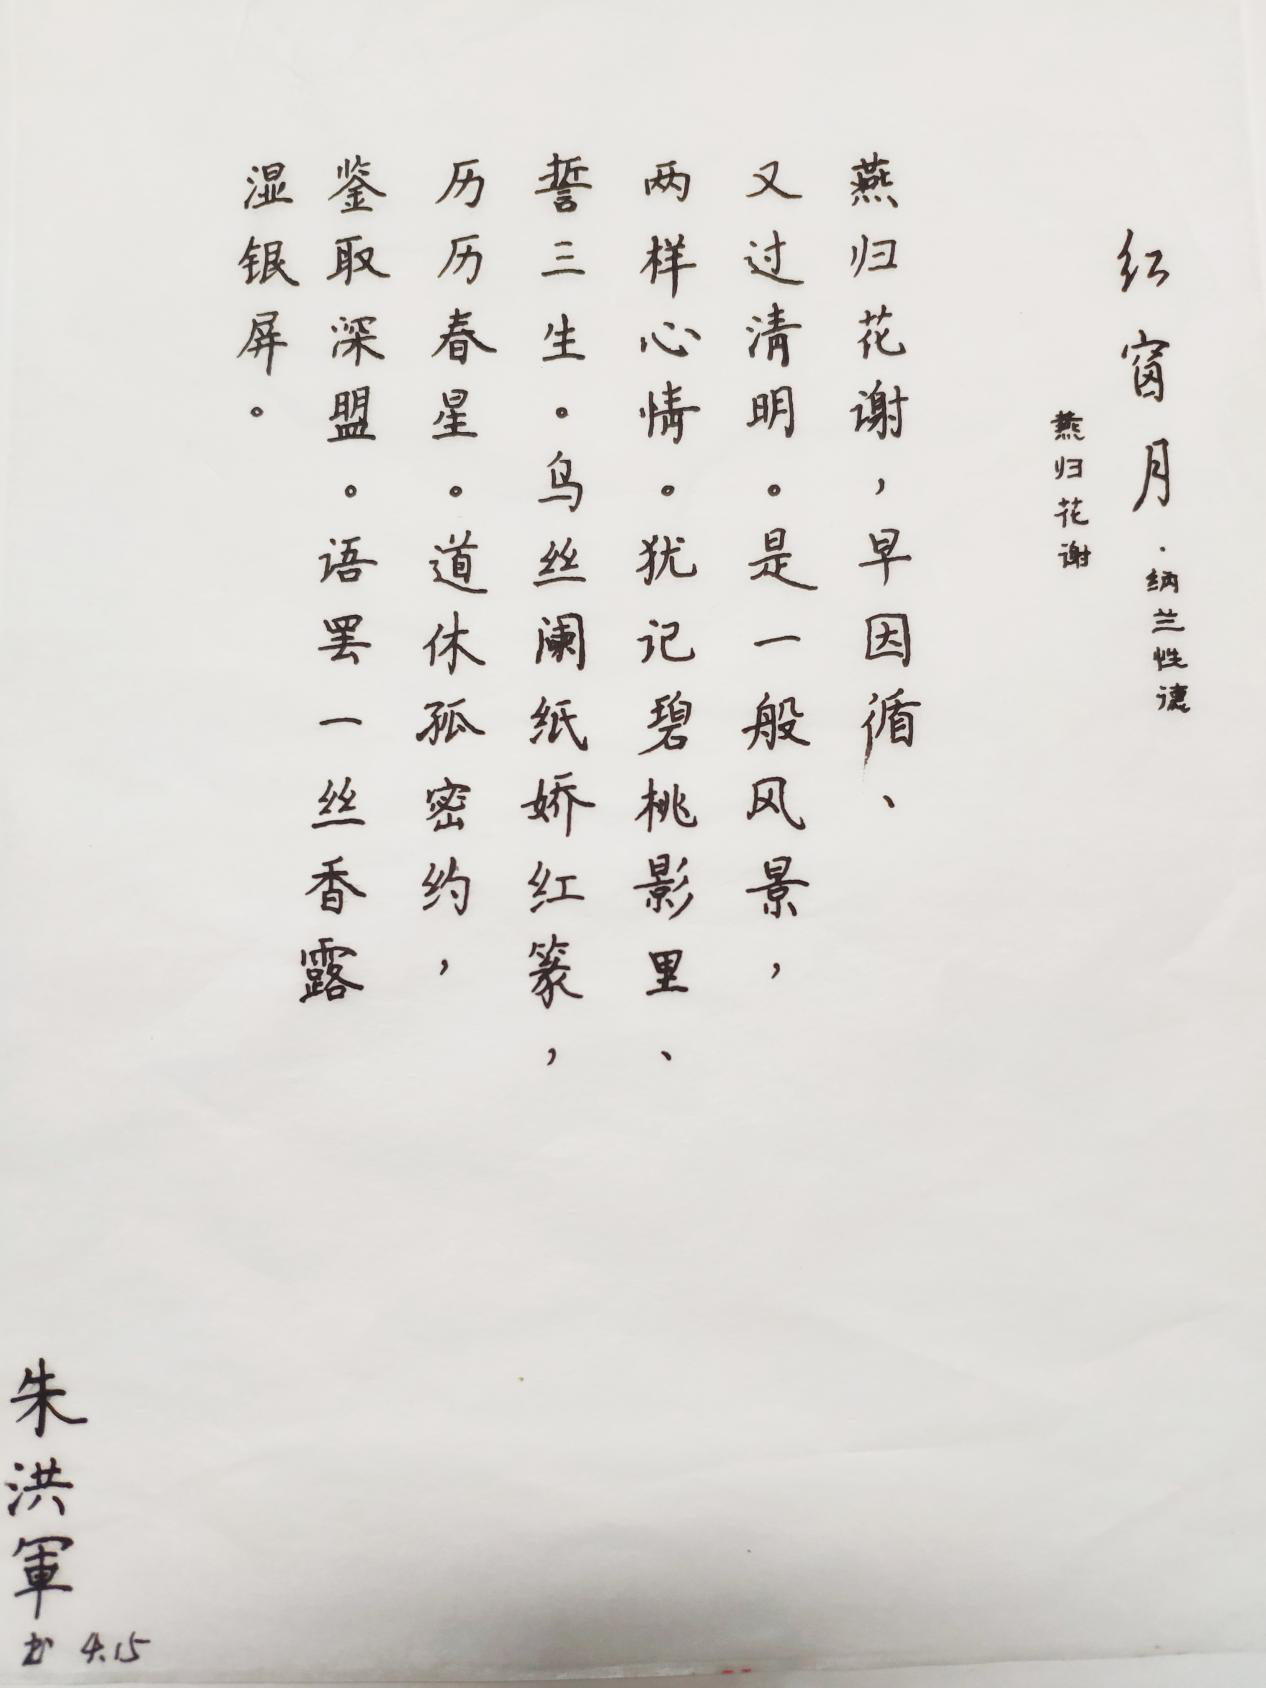 红窗月·纳兰性德
燕归花谢
燕归花谢，早因循、
又过清明。是一般风景，
两样心情。犹记碧桃影里、
誓三生。乌丝阑纸娇红篆，
历历春星。道休孤密约，
鉴取深盟。语罢一丝香露
湿银屏。
朱洪軍
书 4.15